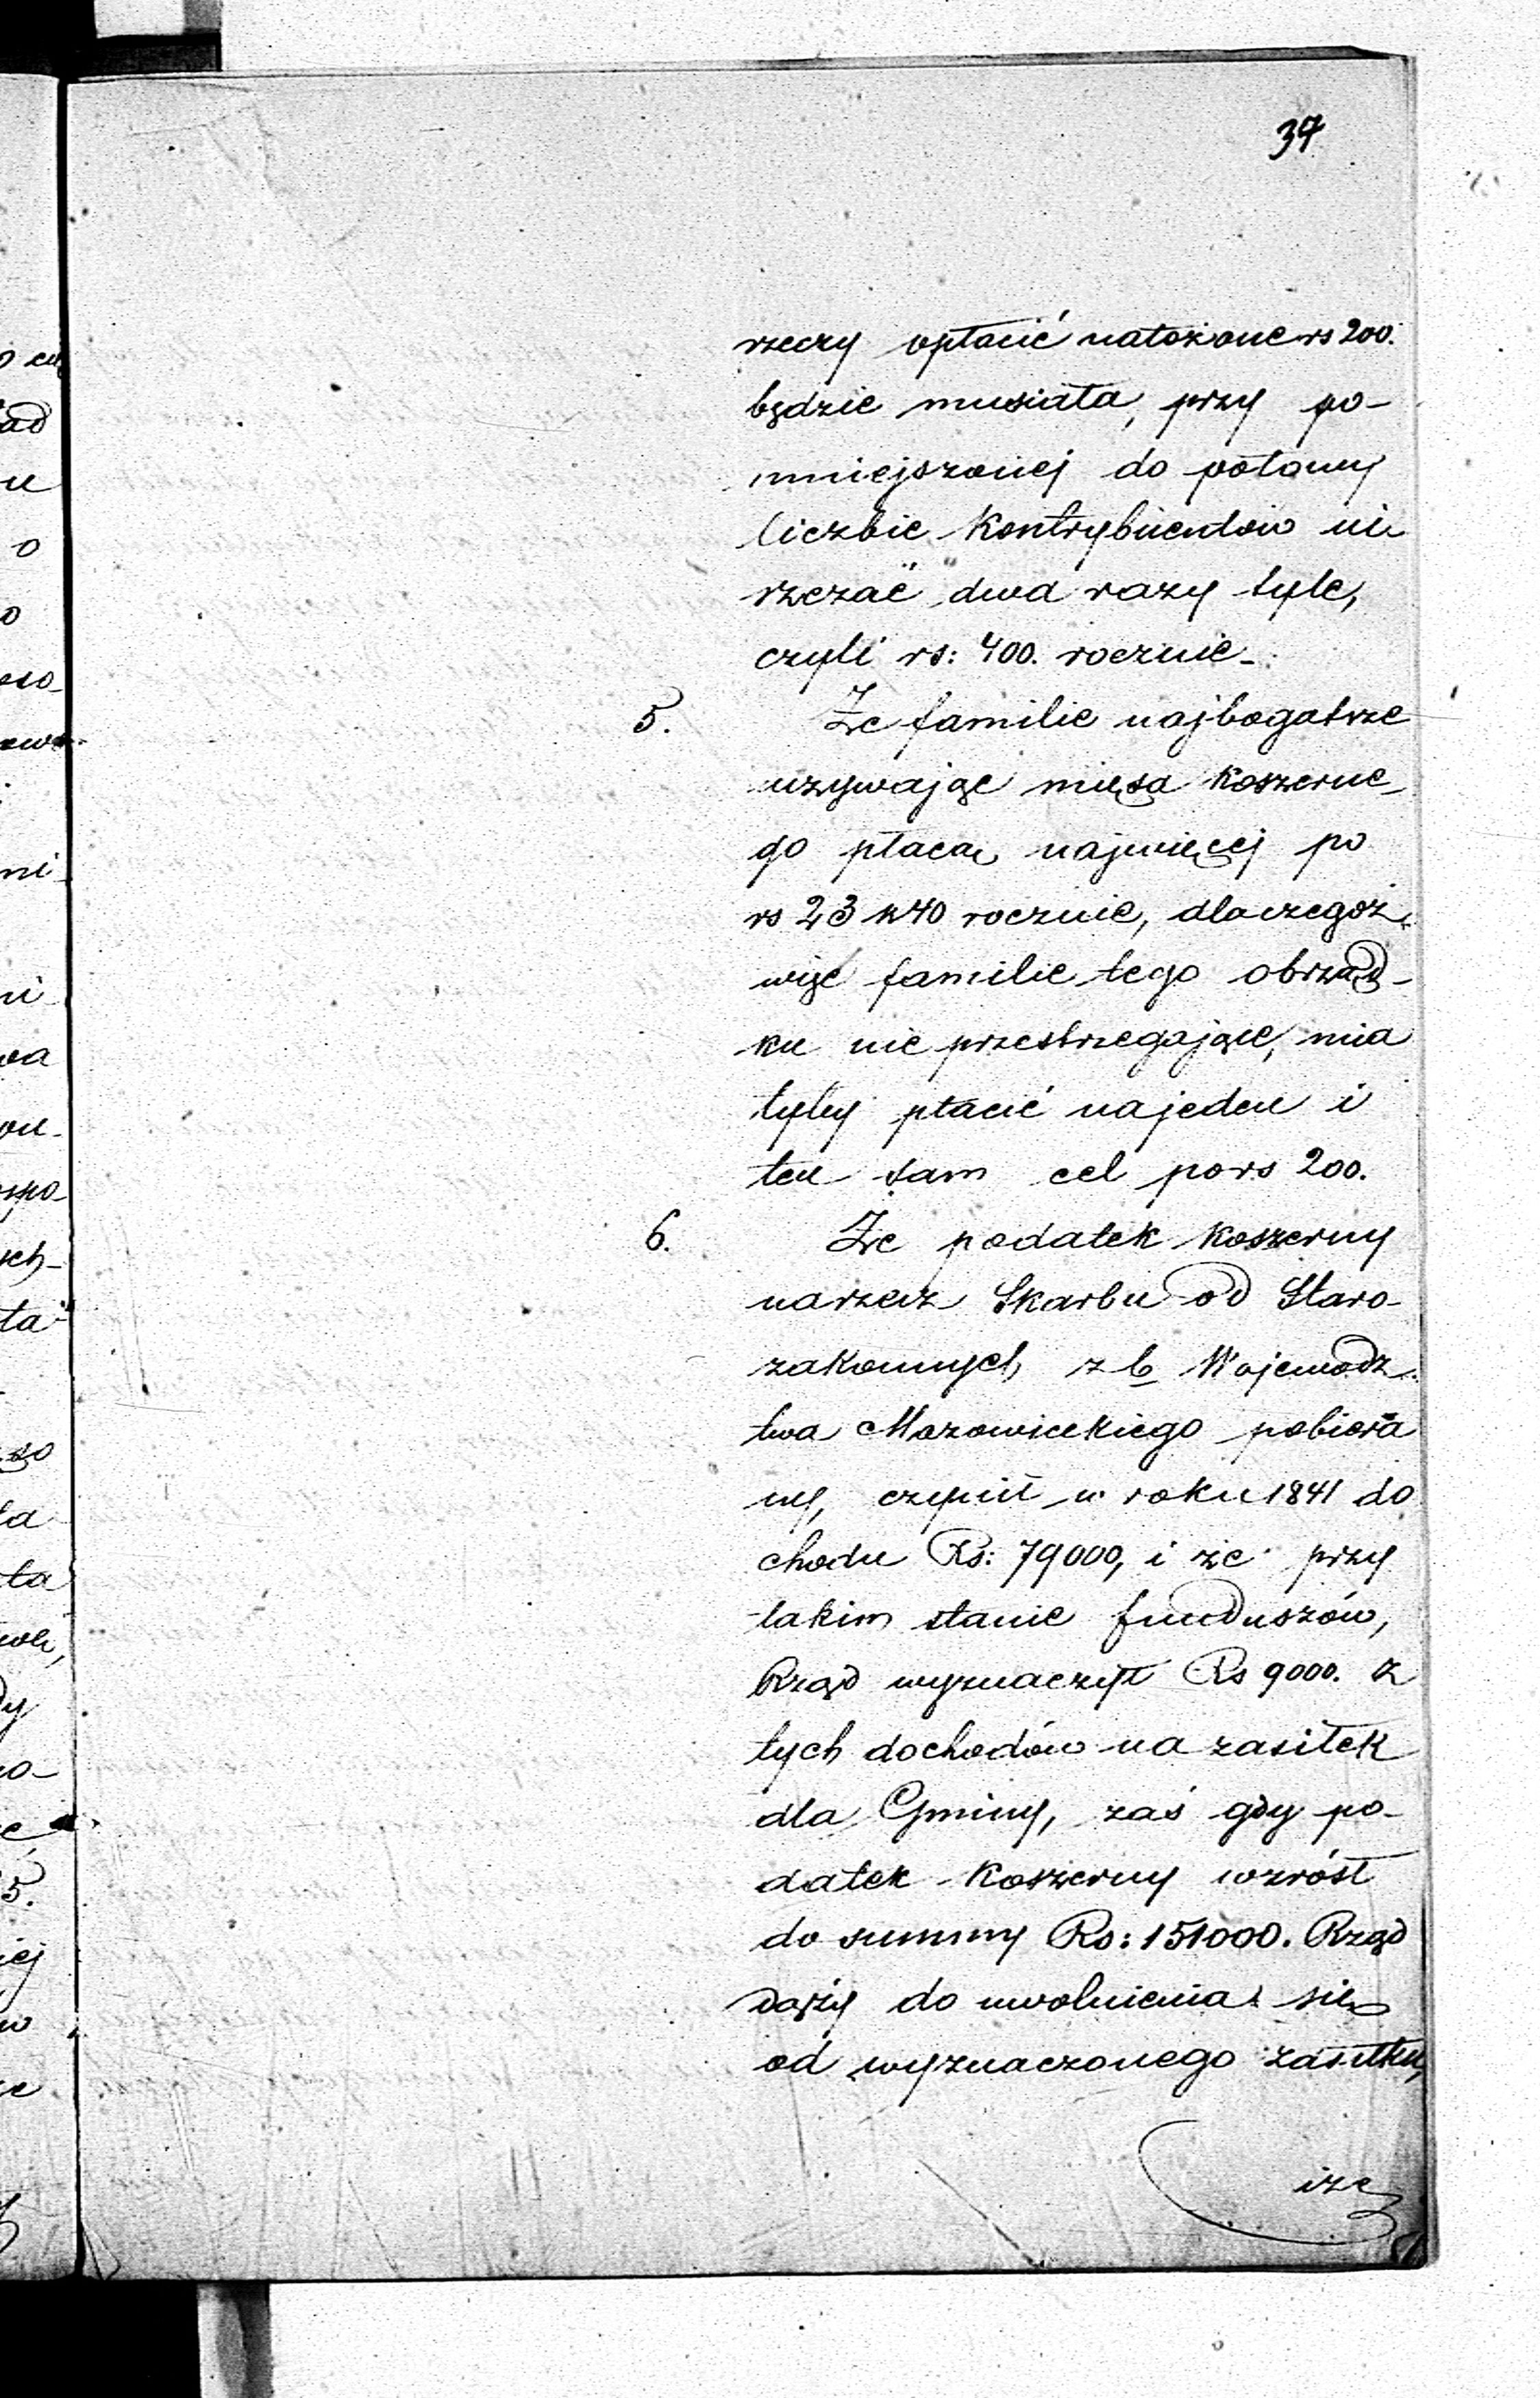 37
rzeczy opłacić nałożone rs 200.
będzie musiała, przy po-
mniejszonej do połowy
liczbie Kontrybuentów ui
rzczać dwa razy tyle,
czyli rs: 400. rocznie.
5. Że familie najbogatsze
uzywając mięsa Koszerne-
go płacą najwięcej po
rs 23 k 40 rocznie, dlaczegoż
więc familie tego obrząd-
ku nie przestrzegające, mia
łyby płacić na jeden i
ten sam cel po rs 200.
6. Że podatek Koszerny
na rzecz Skarbu od Staro-
zakonnych z b Wojewodz
twa Mazowieckiego pobiera
ny, czynił w roku 1841 do
chodu Rs: 79000, i że przy
takim stanie funduszów,
Rząd wyznaczył Rs 9000. z
tych dochodów na zasiłek
dla Gminy, zaś gdy po-
datek Koszerny wzrósł
do summy Rs: 151000. Rząd
dąży do uwolnienia się
od wyznaczonego zasiłku,
ize